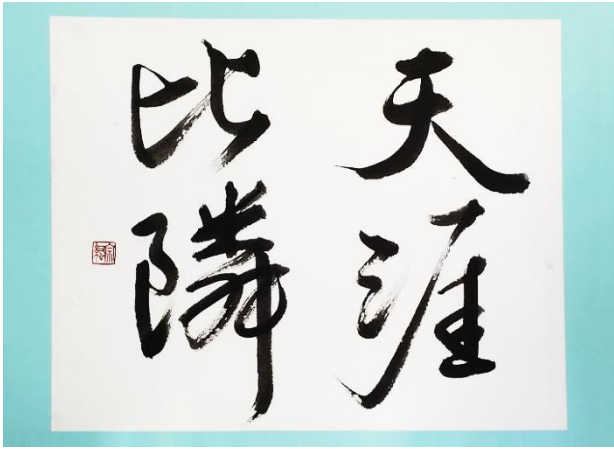 天涯
比隣